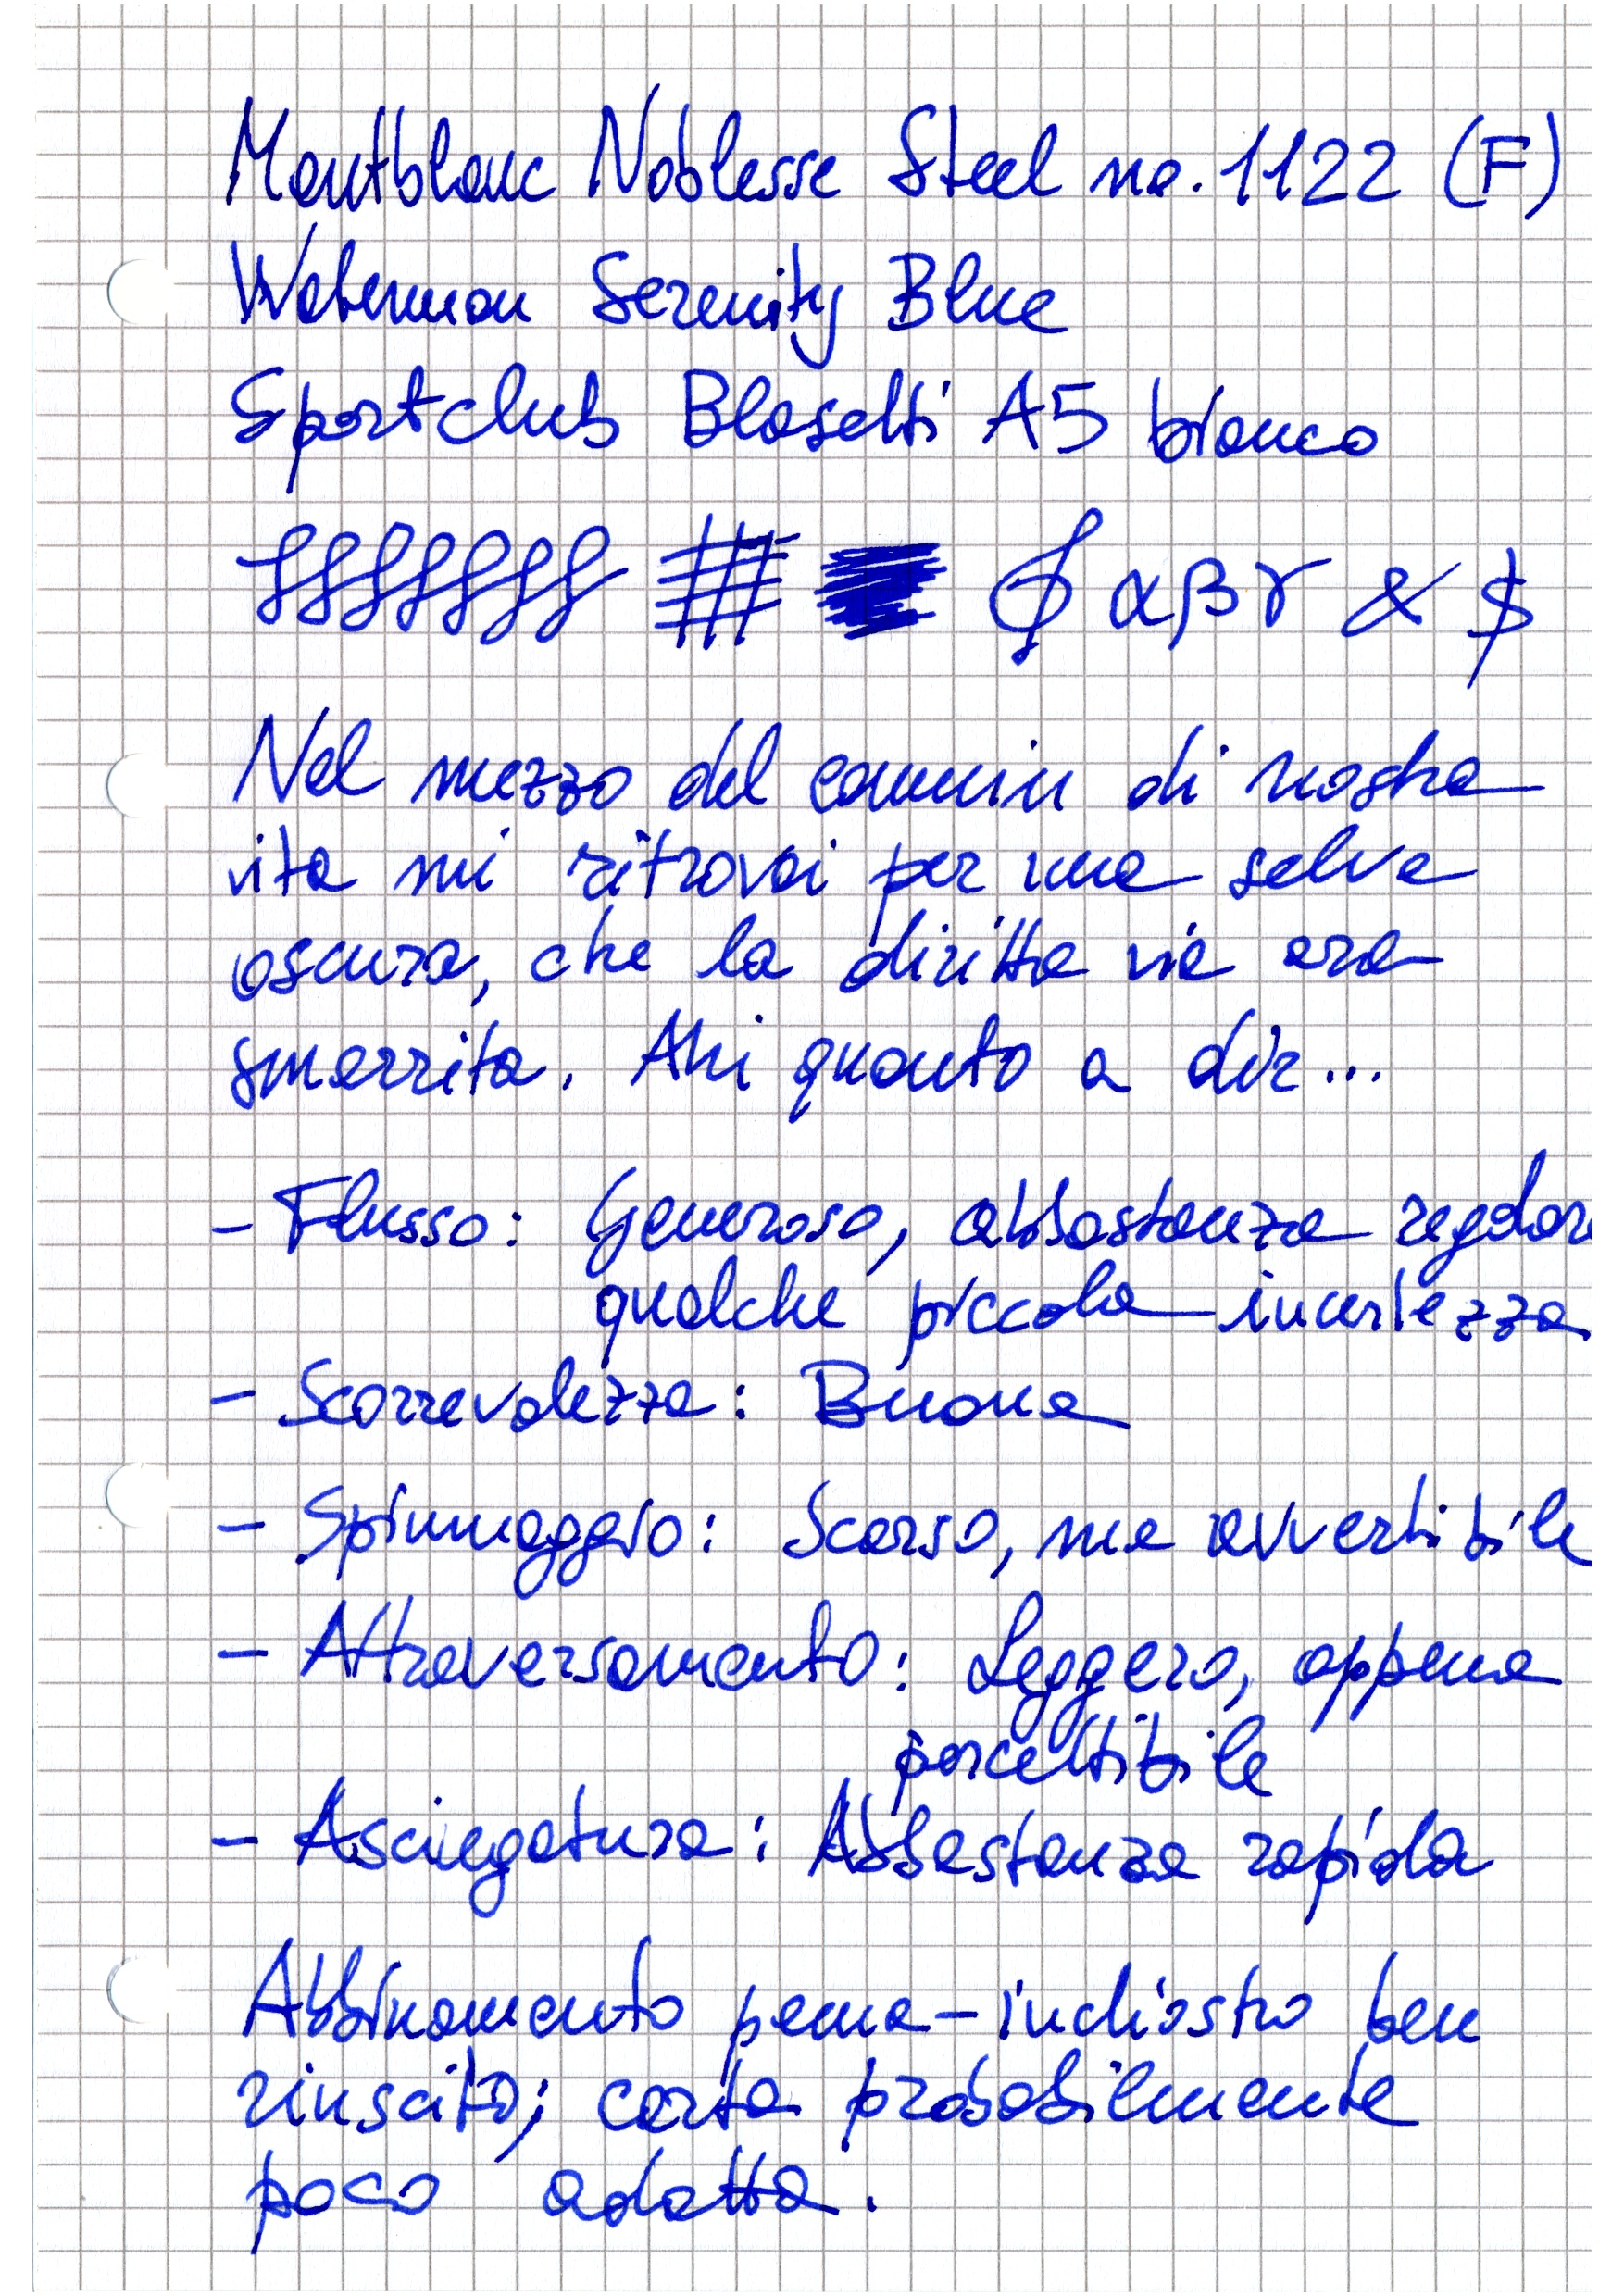 Montblanc Noblesse Steel no. 1122 (F)
Waterman Serenity Blue
Sportclub Blasetti A5 bianco
αβγ & $
Nel mezzo del cammin di nostra
vita mi ritrovai per una selva
oscura, che la diritta via era
smarrita. Ahi quanto a dir...
- Flusso: Generoso, abbastanza regolare
qualche piccola incertezza
- Scorrevolezza: Buona
- Spiumaggio: Scarso, ma avvertibile
- Attraversamento: Leggero, appena
percettibile
- Asciugatura: Abbastanza rapida
Abbinamento penna-inchiostro ben
riuscito; carta probabilmente
poco adatta.